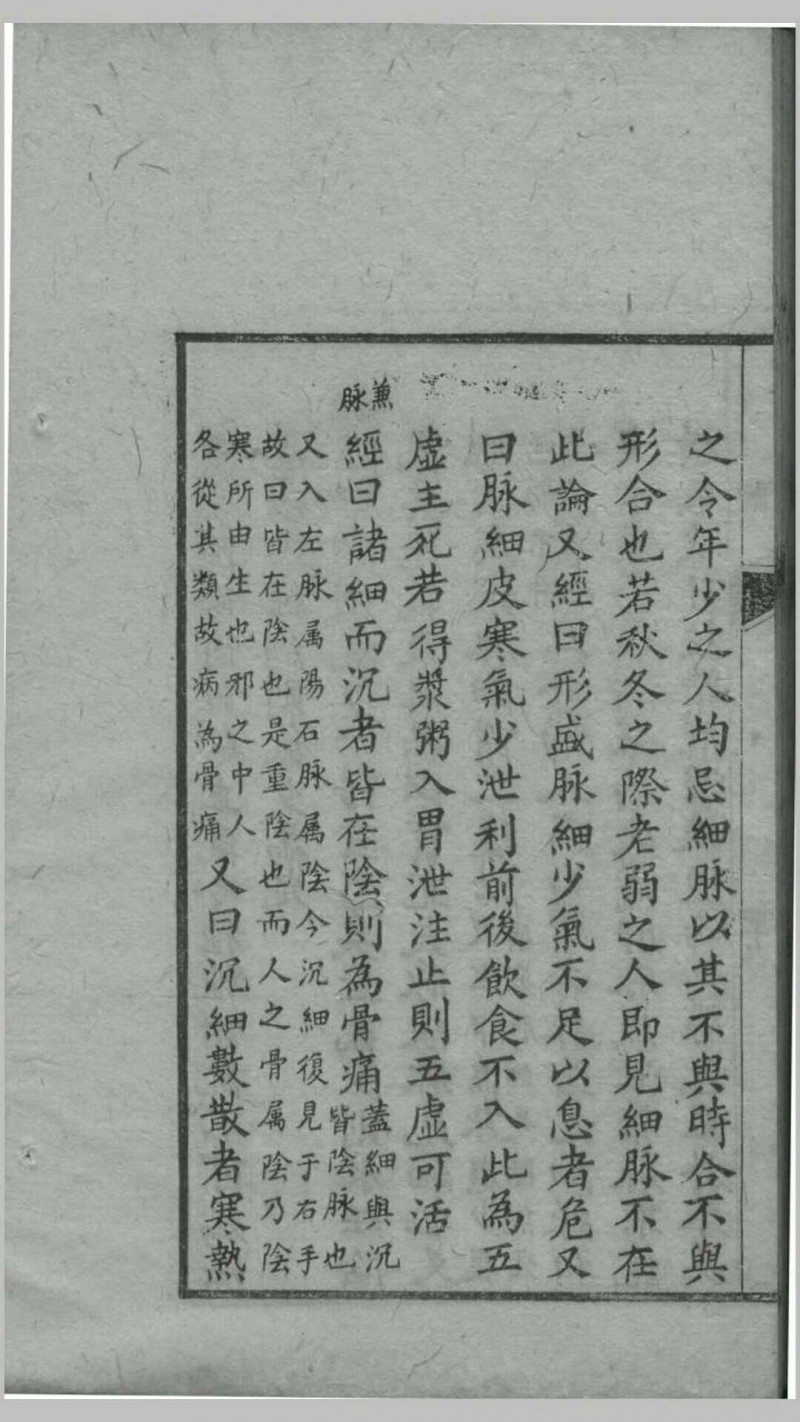 之令年少之人均忌細脉以其不與時合不與
形合也若秋冬之際老弱之人即見細脉不在
此論又經曰形盛脉細少氣不足以息者危又
曰脉細皮寒氣少泄利前後飲食不入此為五
虛主死若得漿粥入胃泄注止則五虛可活
兼
脉
經曰諸細而沉者皆在陰則為骨痛
蓋細與沉
皆陰脉也
又入左脉属陽石脉属陰今沉細復見于右手
故曰皆在陰也是重陰也而人之骨属陰乃陰
寒所由生也邪之中人
各從其類故病為骨痛
又曰沉細數散者寒熱